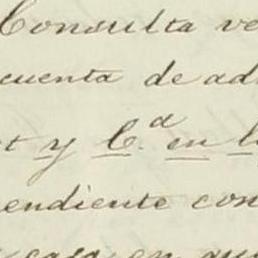 Consulta ve
cuenta de ad
t y C.ª en l
endiente con
casa en qu